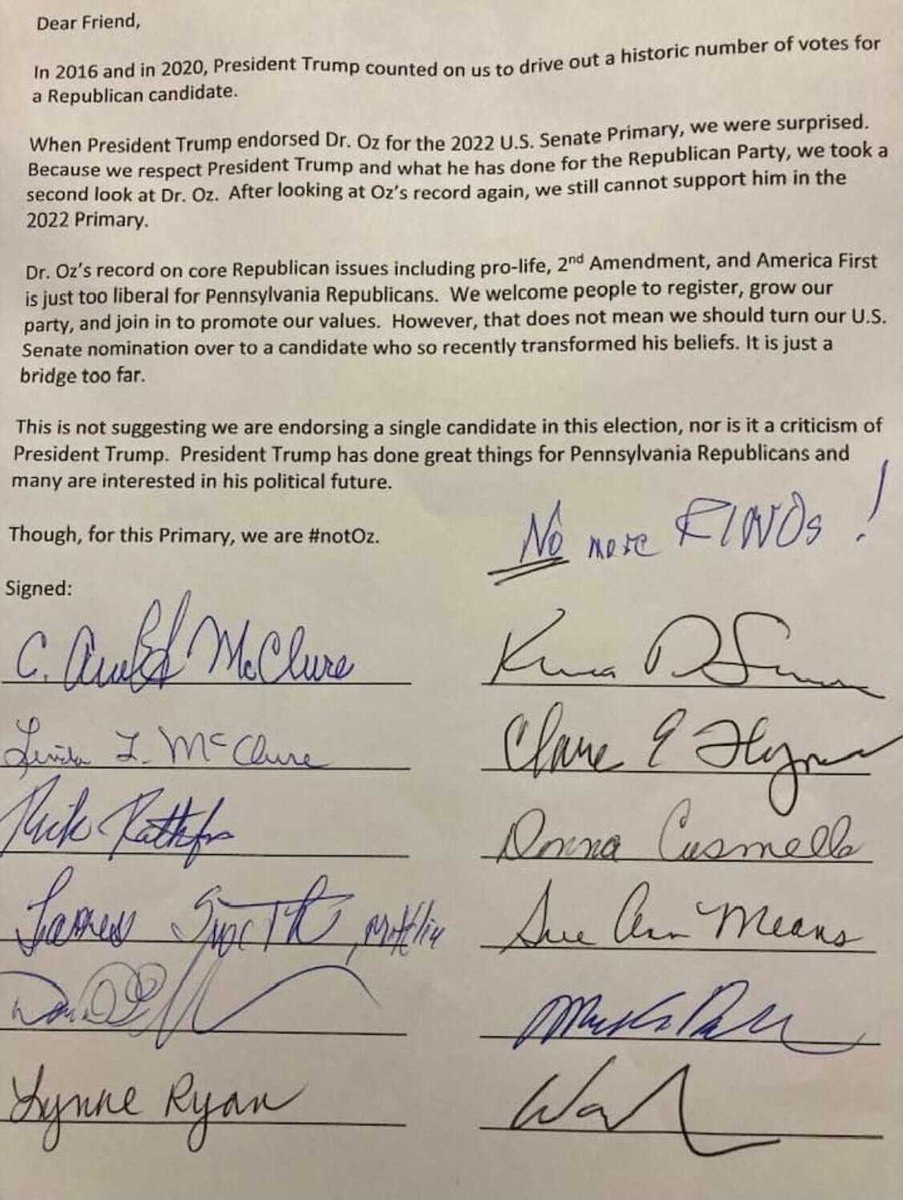 Dear Friend,
In 2016 and in 2020, President Trump counted on us to drive out a historic number of votes for
a Republican candidate.
When President Trump endorsed Dr. Oz for the 2022 U.S. Senate Primary, we were surprised.
Because we respect President Trump and what he has done for the Republican Party, we took a
second look at Dr. Oz. After looking at Oz's record again, we still cannot support him in the
2022 Primary.
Dr. Oz's record on core Republican issues including pro-life, 2nd Amendment, and America First
is just too liberal for Pennsylvania Republicans. We welcome people to register, grow our
party, and join in to promote our values. However, that does not mean we should turn our U.S.
Senate nomination over to a candidate who so recently transformed his beliefs. It is just a
bridge too far.
This is not suggesting we are endorsing a single candidate in this election, nor is it a criticism of
President Trump. President Trump has done great things for Pennsylvania Republicans and
many are interested in his political future.
Though, for this Primary, we are #notOz.
No more RINOs!
Signed:
C. Arnold McClure
Linda L. McClure
Rick
James
Lynne Ryan
Clare E Flynn
Donna Cusmello
Sue Ann Means